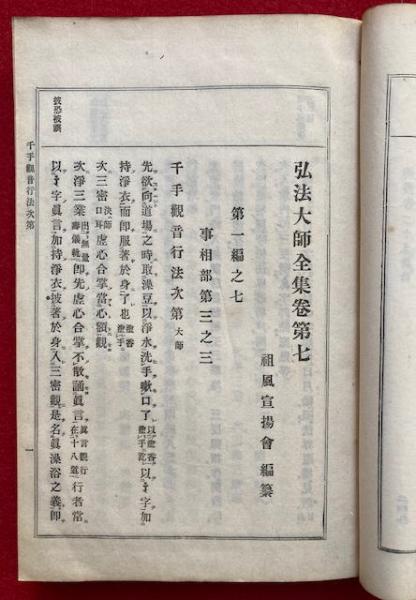 弘法大師全集卷第七
祖風宣揚會 編纂
第一編之七
事相部第三之三
千手觀音行法次第 大師
先欲向道場之時取澡豆以淨水洗手嗽口了
持淨衣而卽服著於身了也
次三密 決師口耳 虛心合掌當心額觀
次淨三業 卽先虛心合掌不散誦眞言 行者常
字眞言加持淨衣披著於身入三密觀是名眞澡浴之義卽
披恐被誤
千手觀音行法次第
一